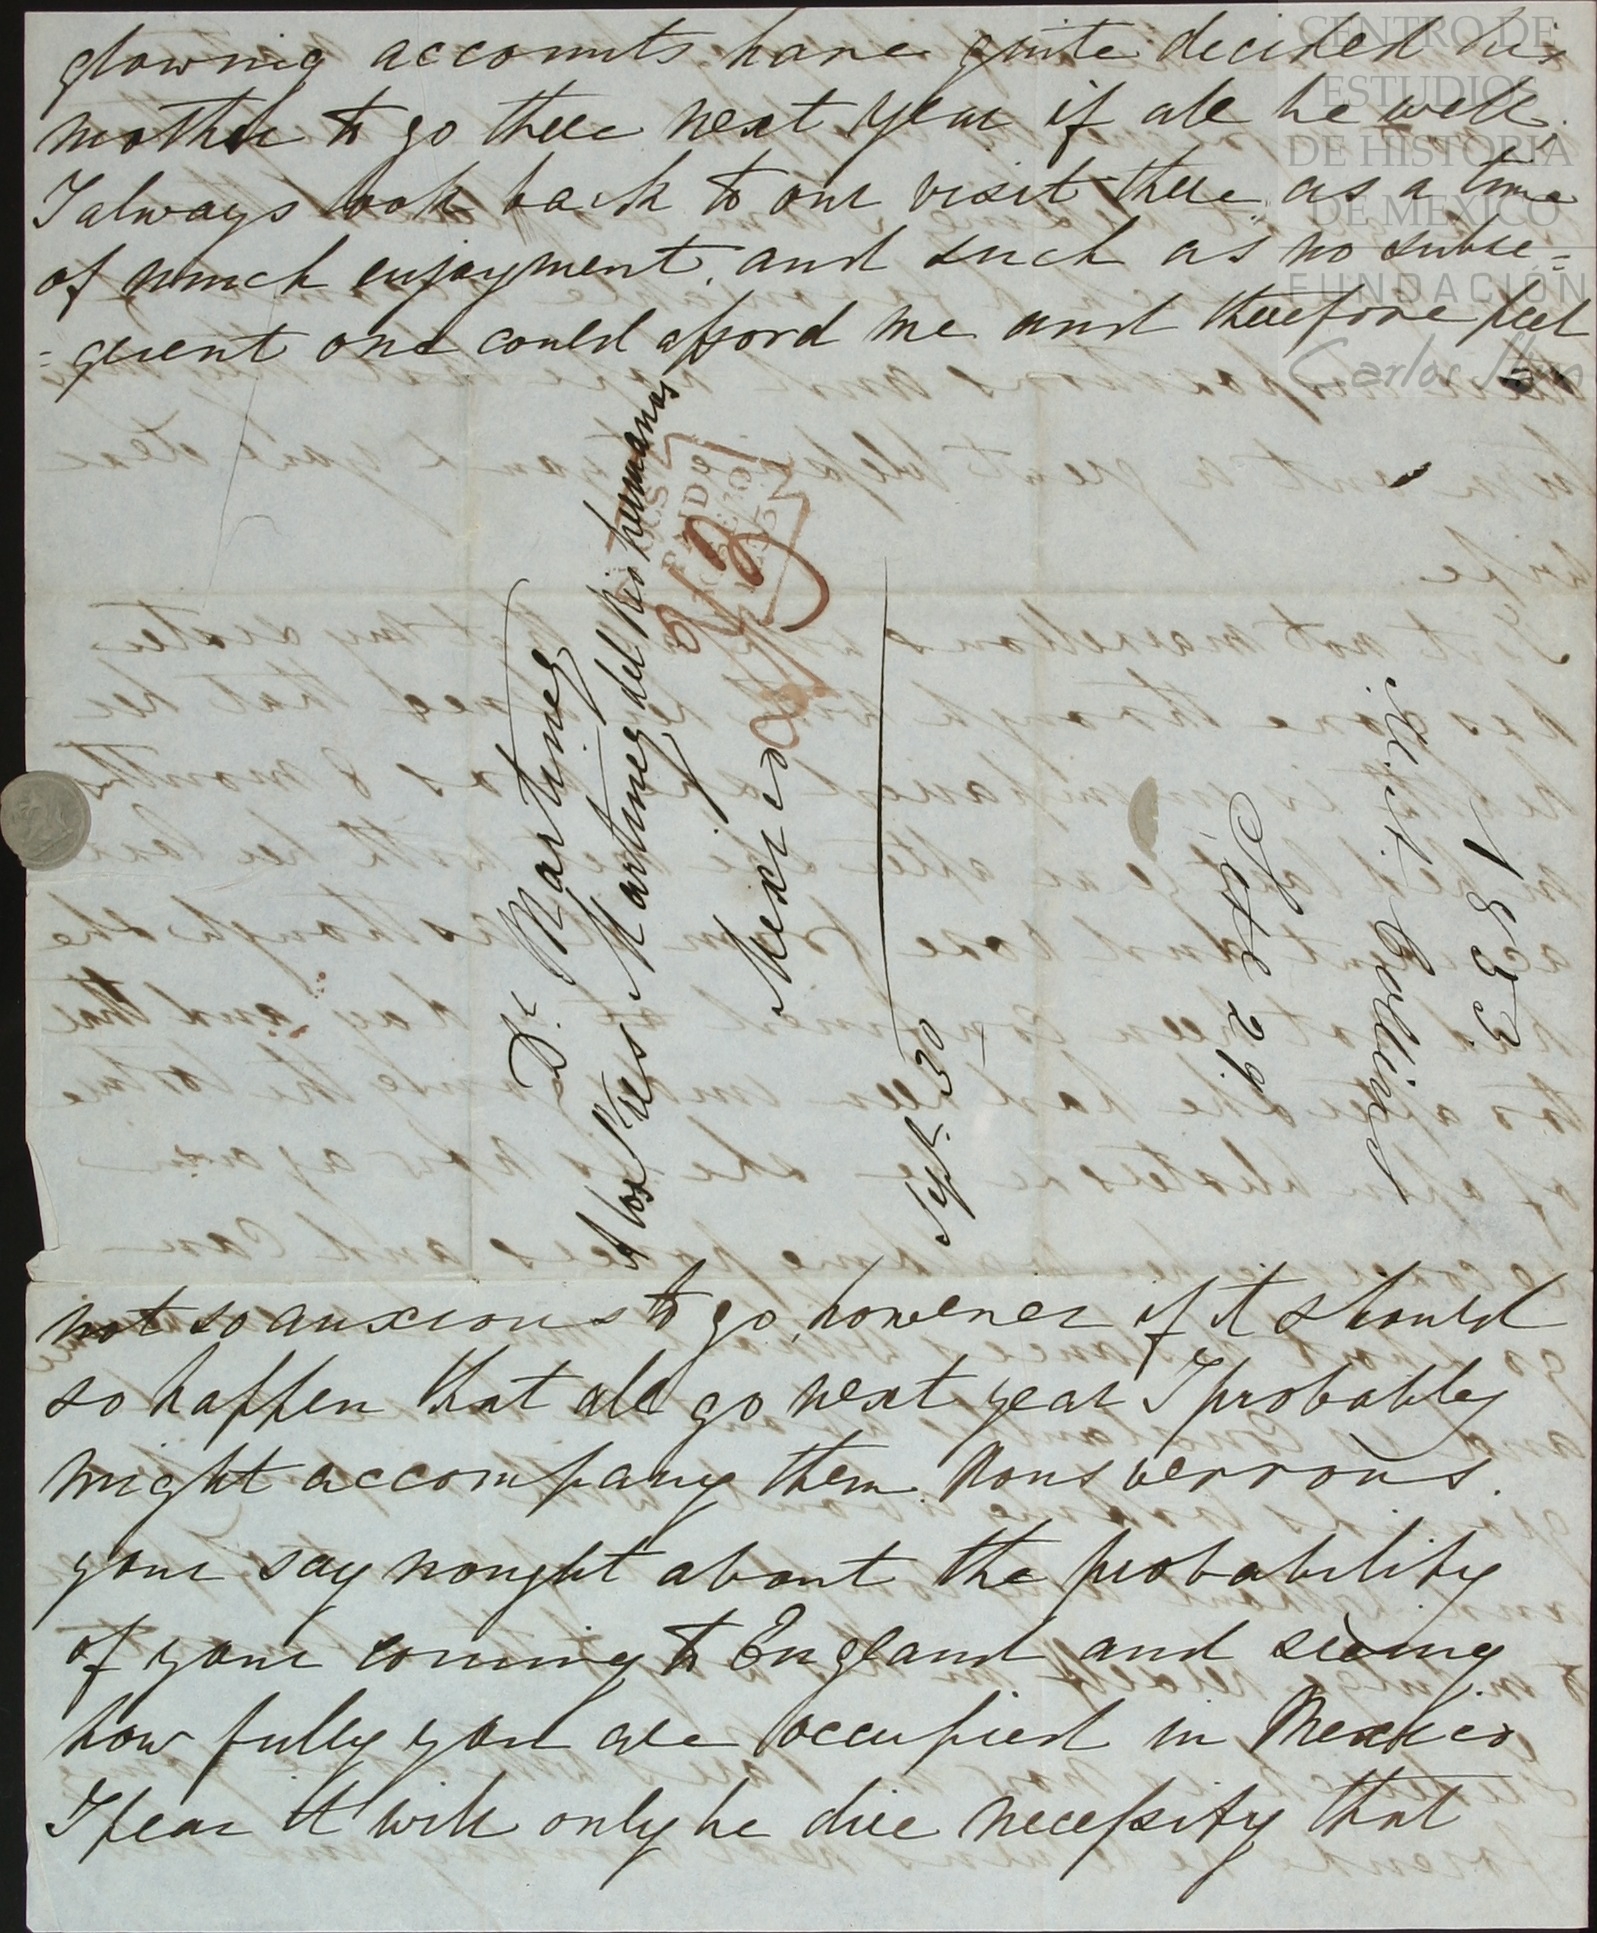 glowing accounts have quite decided his
mother to go there next year if all be well,
I always look back to our visit there, as a time
of much enjoyment, and such as no subse=
=quent one could afford me and therefore feel
Dr. Martinez
A los Sres Martinez del Rio hermanos
Mexico
PAID
Sept. 30
Sete 29.
Mist. Collins
1853
not so anxious to go, however if it should
so happen that all go next year I probably
might accompany them. Nous verrons.
your say nought about the probability
of your coming to England and seeing
how fully you are occupied in Mexico
I fear it will only be dire necessity that
CENTRO DE
ESTUDIOS
DE HISTORIA
DE MEXICO
FUNDACIÓN
Carlos Slim